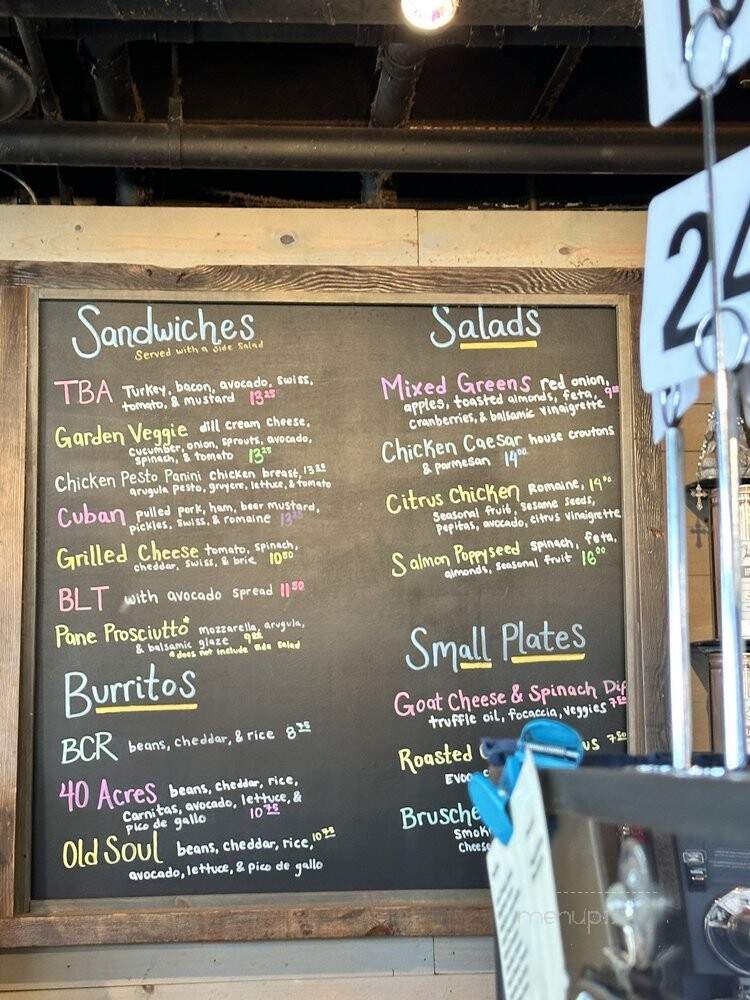 Sandwiches
Served with a side Salad
TBA Turkey, bacon, avocado, swiss,
tomato, & mustard 13²⁵
Garden Veggie dill cream cheese,
cucumber, onion, sprouts, avocado,
spinach, & tomato 13²⁵
Chicken Pesto Panini chicken breast, 13²⁵
arugula pesto, gruyere, lettuce, & tomato
Cuban pulled pork, ham, beer mustard,
pickles, swiss, & romaine
Grilled Cheese tomato, spinach,
cheddar, swiss, & brie 10⁵⁰
BLT with avocado spread 11⁵⁰
Pane Prosciutto* mozzarella, arugula,
& balsamic glaze
*does not include side salad
Burritos
BCR beans, cheddar, & rice 8⁷⁵
40 Acres beans, cheddar, rice,
Carnitas, avocado, lettuce, &
pico de gallo 10⁷⁵
Old Soul beans, cheddar, rice, 10⁷⁵
avocado, lettuce, & pico de gallo
Salads
Mixed Greens red onion,
apples, toasted almonds, feta,
cranberries, & balsamic vinaigrette
Chicken Caesar house croutons
& parmesan 14⁰⁰
Citrus Chicken Romaine, 14⁰⁰
Seasonal fruit, sesame seeds,
Pepitas, avocado, citrus vinaigrette
Salmon Poppyseed spinach, feta,
almonds, seasonal fruit 16⁰⁰
Small Plates
Goat Cheese & Spinach Dip
truffle oil, focaccia, veggies 7⁵⁰
Roasted us 7⁵⁰
EVOO
Brusche
Smok
Cheese
24